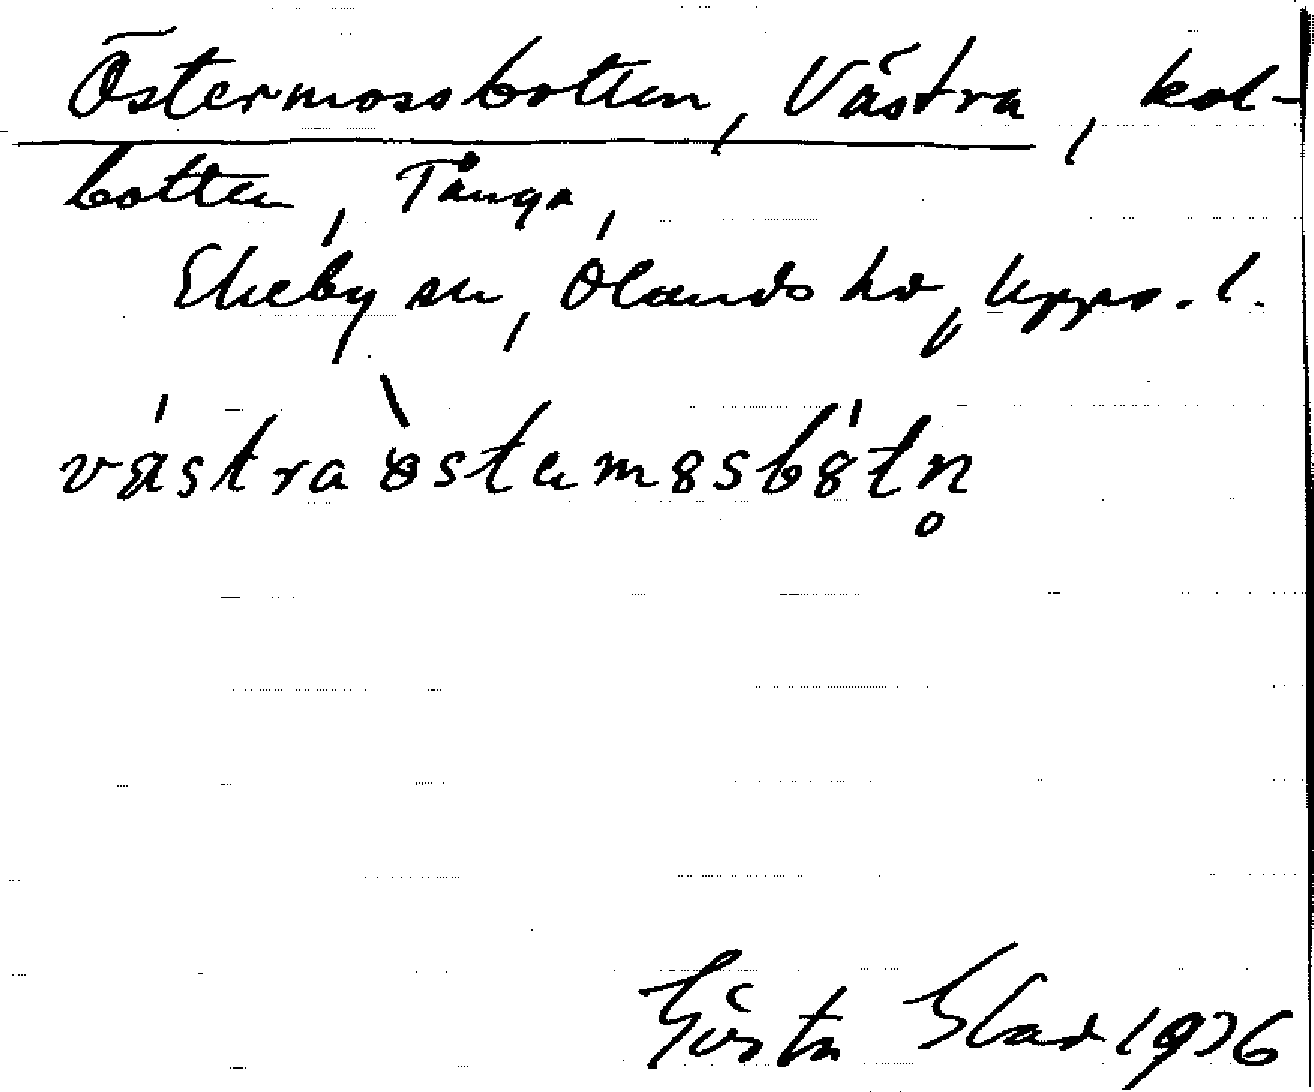 Östermossbotten, Västra, kol-
botten, Tånga,
Ekeby sn, Olands hd, Upps. l.
västra östermossbotn̥
Gösta Blad 1976